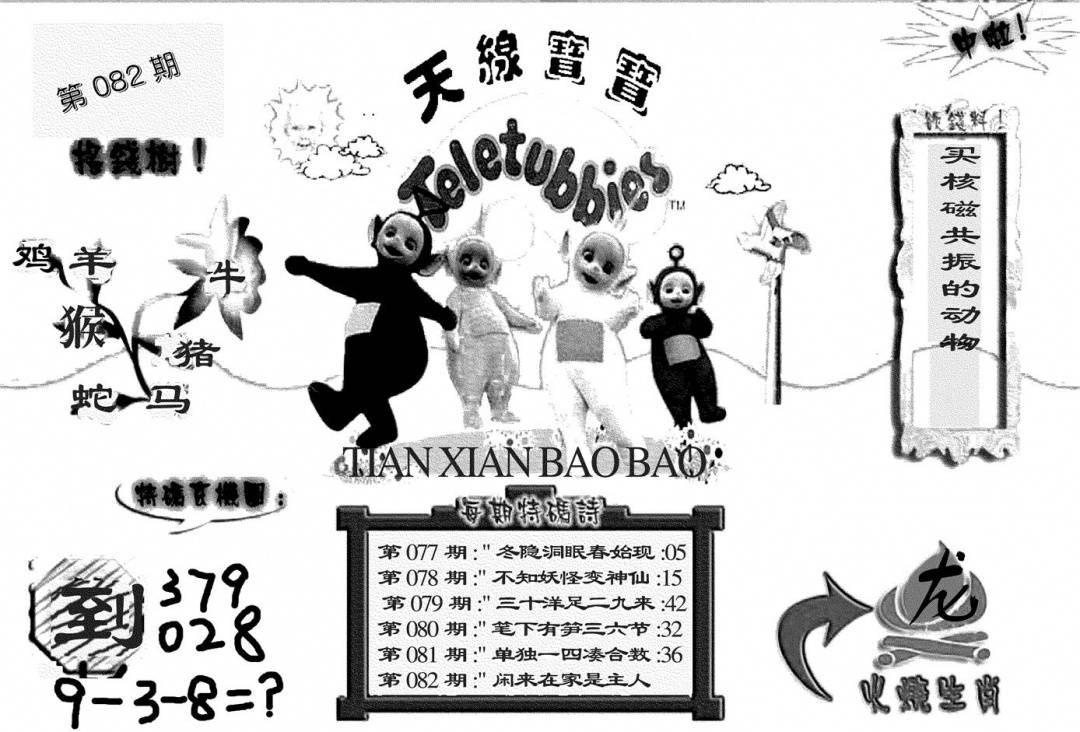 第 082 期
天線寶寶
中啦！
Teletubbies
TM
搖錢樹！
鸡 羊
牛
猴
猪
蛇 马
买核磁共振的动物
TIAN XIAN BAO BAO
特碼玄機圖：
到
379
028
9-3-8=?
每期特碼詩
第 077 期 :" 冬隐洞眠春始现 :05
第 078 期 :" 不知妖怪变神仙 :15
第 079 期 :" 三十洋足二九来 :42
第 080 期 :" 笔下有笋三六节 :32
第 081 期 :" 单独一四凑合数 :36
第 082 期 :" 闲来在家是主人
龙
火燒生肖